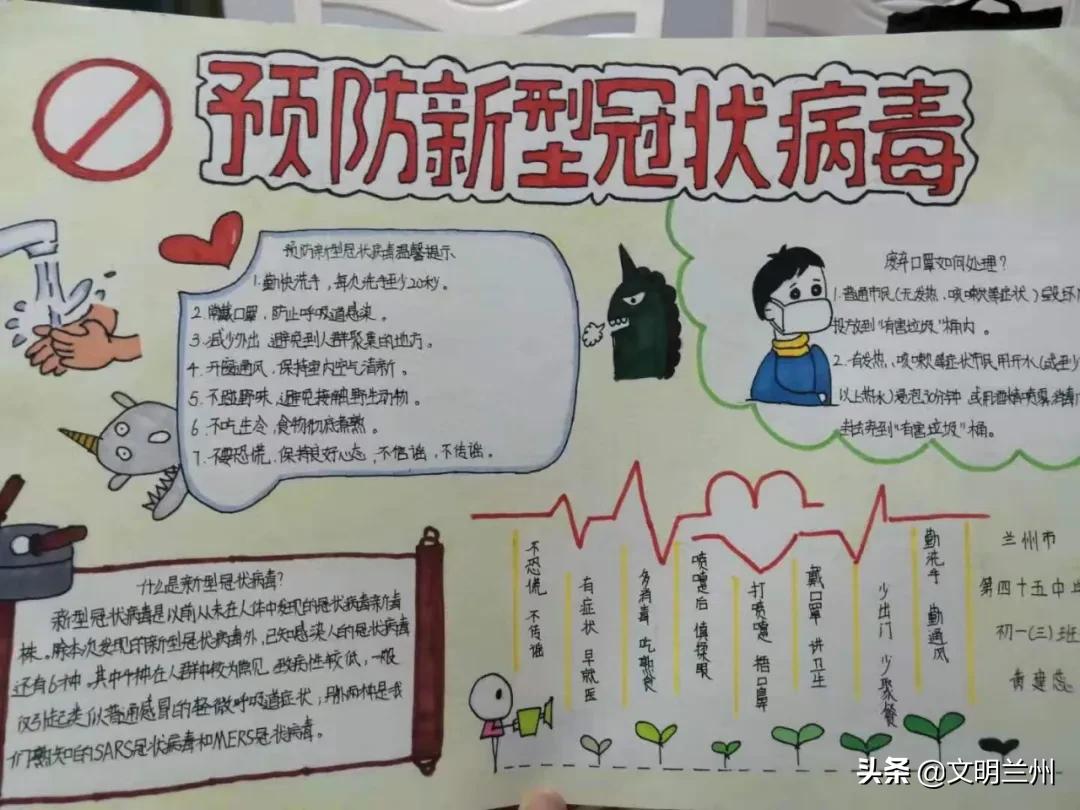 预防新型冠状病毒
预防新型冠状病毒温馨提示
1.勤快洗手,每次洗手至少20秒。
2.常戴口罩,防止呼吸道感染。
3.减少外出 避免到人群聚集的地方。
4.开窗通风,保持室内空气清新。
5.不碰野味,避免接触野生动物。
6.不吃生冷,食物彻底煮熟。
7.不要恐慌,保持良好心态,不信谣,不传谣。
废弃口罩如何处理?
1.普通市民(无发热、咳嗽等症状)
投放到“有害垃圾”桶内。
2.有发热、咳嗽等症状市民用开水(或至少
以上热水)浸泡30分钟 或用酒精喷雾消毒
丢弃到“有害垃圾”桶。
什么是新型冠状病毒?
新型冠状病毒是以前从未在人体中发现的冠状病毒新毒
株。除本次发现的新型冠状病毒外,已知感染人的冠状病毒
还有6种。其中4种在人群中较为常见,致病性较低,一般
仅引起类似普通感冒的轻微呼吸道症状;另外两种是我
们熟知的SARS冠状病毒和MERS冠状病毒。
不恐慌 不传谣
有症状 早就医
多消毒 吃熟食
喷嚏后 慎揉眼
打喷嚏 捂口鼻
戴口罩 讲卫生
少出门 少聚餐
勤洗手 勤通风
兰州市
第四十五中
初一(三)班
头条 @文明兰州